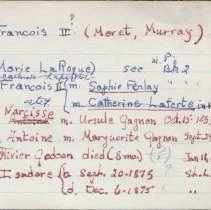 ?
Francois II (Moret, Murray)
St. P.
Marie LaRoque) see Bk 2
Francois II m. Sophie Penlay
m. Catherine Laferte
Narcisse
Antoine m. Ursule Gagnon Oct 15-185
Antoine m. Marguerite Gagnon Sept 2
Olivier Gedeon died (8 mo.) Jan 18
Isadore b. Sept. 20-1875 St. L
d. Dec. 6-1875 " "